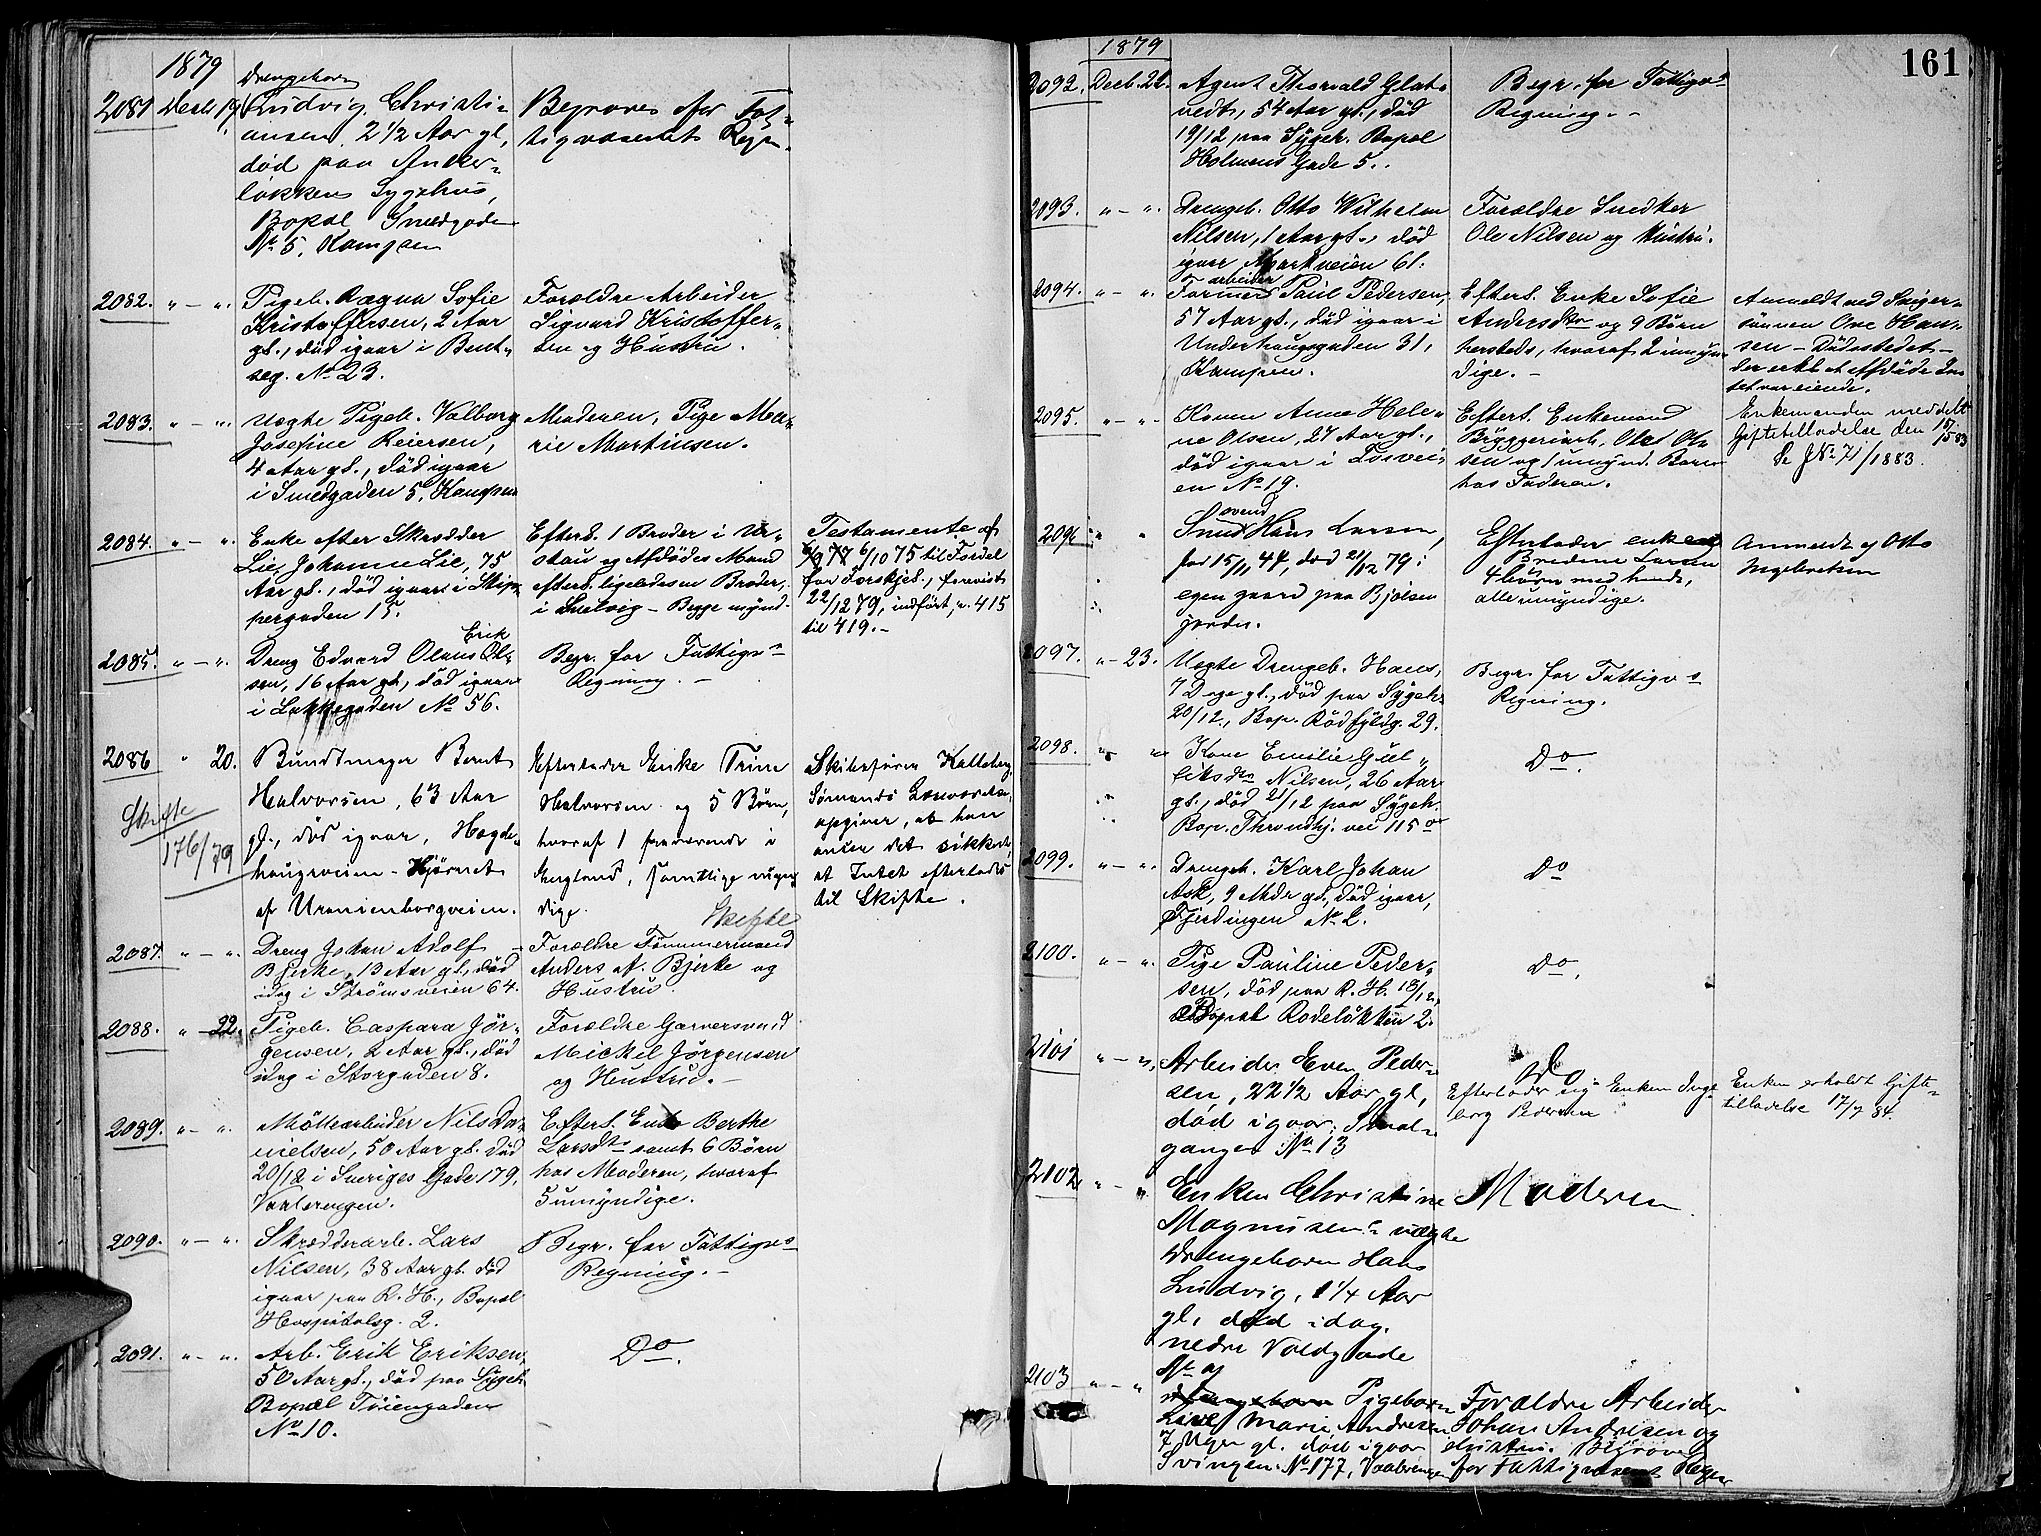 1879
Drengebarn
2081 Decbr 19. Ludvig Christi-
ansen, 2 1/2 Aar gl,
død paa Anker-
løkken Sygehus,
Bopæl Smedgaden
No 5, Kampen
Begraves for Fat-
tigvæsenets Regn.
2082. " - ". Pigeb. Ragna Sofie
Kristoffersen, 2 Aar
gl., død igaar i Bent-
seg. No 23.
Forældre Arbeider
Sigvard Kristoffer-
sen og Hustru.
2083. " - ". Uægte Pigeb. Valborg
Josefine Reiersen,
4 Aar gl., død igaar
i Smedgaden 5, Kampen
Moderen, Pige Ma-
rie Martinsen.
2084. " - ". Enke efter Skrædder
Lie, Johanne Lie, 75
Aar gl., død igaar i Skip-
pergaden 15.
Efterl. 1 Broder i
og Afdødes Mand
efterl. ligeledes en Broder,
i - Begge mynd.
Testamente af
6/10 75 til Fordel
for Forskjel., forevist
22/12 79, indført, 415
til 419.-
2085. " - ". Dreng Edvard Olaus Erik Ol-
sen, 16 Aar gl., død igaar
i Lakkegaden No 56.
Begr. for Fattigvs
Regning. -
2086 " 20. Bundtmager Bernt
Halvorsen, 63 Aar
gl., død igaar, Hægde-
haugsveien - Hjørnet
af Uranienborgveien.
Skifte
176/79
Efterlader Enke Trine
Halvorsen og 5 Børn,
hvoraf 1 fraværende i
England, samtlige myn-
dige.
Skifte
opgiver, at han
anser det sikkert,
at Intet efterlades
til Skifte.
2087. " - ". Dreng Johan Adolf
Bjerke, 13 Aar gl., død
idag i Strømsveien 64.
Forældre Tømmermand
Anders A. Bjerke og
Hustru.
2088. " - 22. Pigeb. Caspara Jør-
gensen, 2 Aar gl., død
idag i Storgaden 8.
Forældre Garversvend
Mickel Jørgensen
og Hustru. -
2089. " - ". Møllearbeider Nils Da-
nielsen, 50 Aar gl. død
20/12 i Sveriges Gade 179,
Vaalerengen.
Efterl. Enke Berthe
Larsdtr samt 6 Børn
hos Moderen, hvoraf
5 umyndige.
2090. " - ". Skrædderarb. Lars
Nilsen, 38 Aar gl. død
igaar paa R. H., Bopæl
Hospitalsg. 2.
Begr. for Fattigvs
Regning. -
2091. " - ". Arb. Erik Eriksen,
50 Aar gl., død paa Sygeh.
Bopæl Tøiengaden
No 10.
Do.
161
1879
2092. Decb. 22. Agent Thorvald Glat-
vedt, 54 Aar gl., død
19/12 paa Sygeh. Bopæl
Holmens Gade 5.
Begr. for Fattigvs
Regning. -
2093. " - ". Drengeb. Otto Wilhelm
Nilsen, 1 Aar gl., død
igaar Markveien 61.
Forældre Snedker
Ole Nilsen og Hustru.
2094. " - ". Formerarbeider Paul Pedersen,
57 Aar gl., død igaar i
Underhaugsgaden 31,
Kampen.
Efterl. Enke Sofie
Andersdtr og 9 Børn
hersteds, hvoraf 2 umyn-
dige. -
Anmeldt ved Sviger-
sønnen Ove Han-
sen - Dødsstedet -
der erkl. at Afdøde In-
tet var eiende.
2095. " - ". Konen Anne Hele-
ne Olsen, 27 Aar gl.,
død igaar i Fosvei-
en No 19.
Efterl. Enkemand
Byggeriarb. Olaf Ol-
sen og 1 umynd. Barn
hos Faderen.
Enkemanden meddelt
Giftetilladelse den 17/5 83
Se J No 71/1883.
2096 " " Smedsvend Hans Larsen,
for 15/11 44, død 21/12 79 i
egen gaard paa Bjølsen
jorder.
Efterlader enken
Bredine Larsen
4 børn med hende,
alle umyndige.
Anmeldt af Otto
Ingebretsen
2097. " - 23. Uægte Drengeb. Hans,
7 Dage gl., død paa Sygeh.
20/12, Bop. Rødfyldg. 29.
Begr. for Fattigvs
Regning.
2098. " " Kone Emilie Gul-
liksdtr Nilsen, 26 Aar
gl., død 21/12 paa Sygeh.
Bop. Throndhj. vei 115 a
Do.
2099. " - ". Drengeb. Karl Johan
Ask, 9 Mdr gl., død igaar,
Fjerdingen No 2.
Do
2100. " - ". Pige Pauline Peder-
sen, død paa R. H. 18/12,
Bopæl Rodeløkken 2.
Do.
2101 " - ". Arbeider Even Peder-
sen, 22 1/2 Aar gl,
død igaar, Smal-
gangen No 13
Do
Efterlader sig Enken Inge-
borg Pedersen
Enken erholdt Gifte-
tilladelse 17/7 84.
2102 " - ". Enken Christine
Magnusens uægte
Drengebarn Hans
Ludvig, 1 1/4 Aar
gl, død idag,
nedre Voldgade
No 9
Moderen
2103 " - " Pigebarn
Marie Andresen
7 Uger gl. død igaar
Svingen No 177, Vaalerengen
Forældre Arbeider
Johan Andresen og
Hustru. Begraves
for Fattigvæsenets Regn